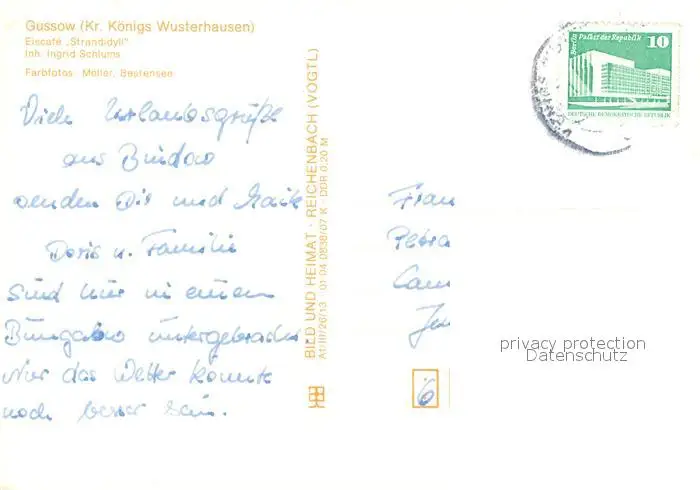 Gussow (Kr. Königs Wusterhausen)
Eiscafé „Strandidyll"
Inh. Ingrid Schlums
Farbfotos: Möller, Bestensee
Viele Urlaubsgrüße
aus Bindow
senden Dir und Maik
Doris u. Familie
Sind hier in einem
Bungalow untergebracht.
Nur das Wetter könnte
noch besser sein.
BILD UND HEIMAT · REICHENBACH (VOGTL)
A1/III/26/13 01 04 0838/07 K · DDR 0,20 M
Berlin Palast der Republik
10
DEUTSCHE DEMOKRATISCHE REPUBLIK
Frau
Petra
6
privacy protection
Datenschutz